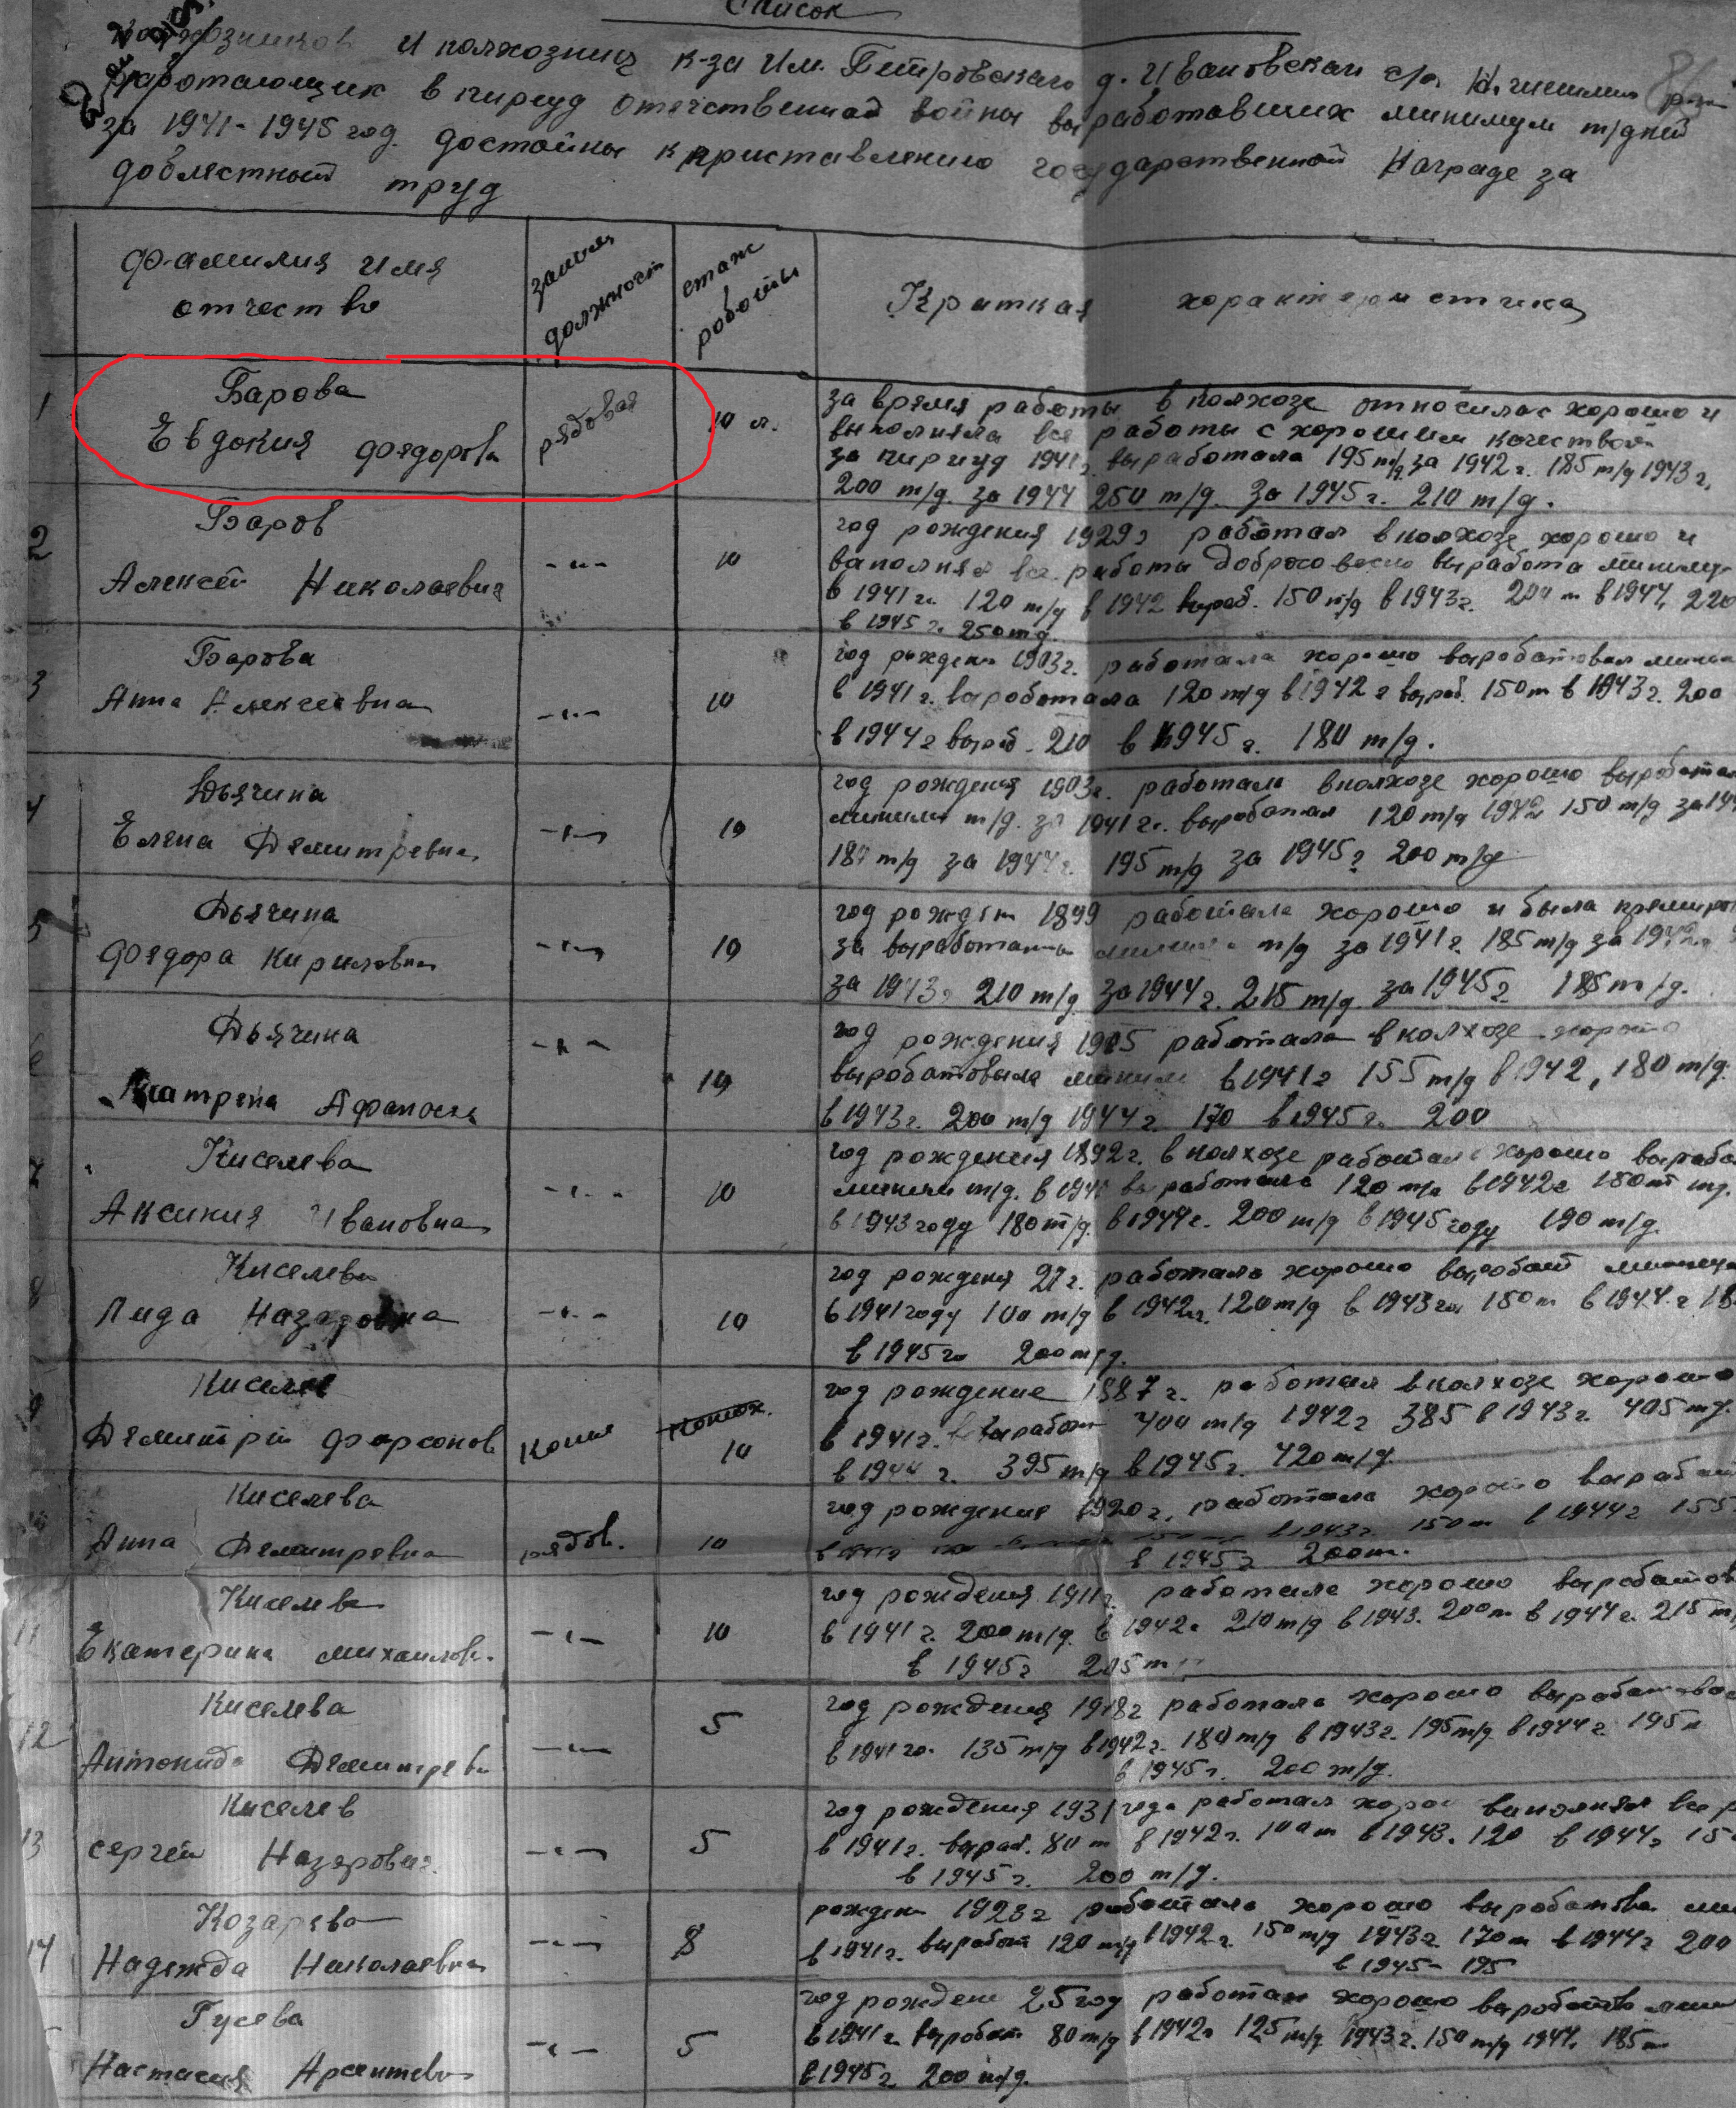 Список
и колхозниц к-за Им. Петровского д. Ивановская с/с
работающих в пириуд отечественной войны выработавших минимум т/дней
за 1941-1945 год. достойны к приставлению государственной Награде за
доблестный труд
фамилия имя
отчество
заним
должност
стаж
работы
Краткая характеристика
1
Барова
Евдокия Фядорови
рядовая
10 л.
за время работы в колхозе относилас хорошо и
выполняла все работы с хорошим качеством
за пириуд 1941г. выработала 195 т/д за 1942 г. 185 т/д 1943 г,
200 т/д. за 1944 250 т/д. за 1945 г. 210 т/д.
2
Баров
Алексей Николаевич
10
год рождения 1929г работал в колхозе хорошо и
в 1941 г. 120 т/д в 1942 выраб. 150 т/д в 1943г. 200 т в 1944, 220
в 1945 г. 250 тд.
3
Барова
Анна Алексеевна
10
год рожден 1903г. работала хорошо
в 1941 г. выработала 120 т/д в 1942 г выраб. 150 т в 1943 г. 200
в 1944 г выраб. 210 в 1945 г. 180 т/д.
4
Дьячина
Елена Демитревна
10
год рождения 1903г. работала в колхозе хорошо
т/д. за 1941 г. выработал 120 т/д 1942 150 т/д
187 т/д за 1944 г. 195 т/д за 1945 г 200 т/д
5
Дьячина
Фядора Кириловна
10
год рожден 1899 работала хорошо и была
за выработанна т/д за 1941 г. 185 т/д за 1942г
за 1943г 210 т/д за 1944 г. 215 т/д. за 1945 г. 185 т/д.
6
Дьячина
Катрена Афанасев
10
год рождения 1905 работала в колхозе хорошо
выработовыла миним в 1941 г 155 т/д в 1942, 180 т/д.
в 1943 г. 200 т/д 1944 г. 170 в 1945 г. 200
7
Киселева
Аксиния Ивановна
10
год рождения 1892г. в колхозе работала хорошо
т/д. в 1941 выработала 120 т/д в 1942г 150 тд.
в 1943 году 180 т/д. в 1944 г. 200 т/д в 1945 году 190 т/д.
8
Киселева
Лида Назаровна
10
год рождения 27 г. работала хорошо
в 1941 году 100 т/д в 1942г. 120 т/д в 1943 150 т в 1944 г
в 1945 г 200 т/д.
9
Киселев
Демитрий Фарсонов
Конюх
10
год рождение 1887 г. работал в колхозе хорошо
в 1941 г. выработ 400 т/д 1942 г 385 в 1943 г. 405 тд.
в 1944 г. 395 т/д в 1945 г. 420 т/д.
Киселева
Анна Демитревна
рядов.
10
год рождение 1920 г. работала хорошо
в 1943г. 150 т в 1944 г 155
в 1945 г 200 т.
11
Киселева
Екатерина Михаилов.
10
год рождения 1911г. работала хорошо
в 1941 г. 200 т/д. в 1942г 210 т/д в 1943. 200 т в 1944 г. 215 т/
в 1945 г 205 т
12
Киселева
Антонида Демитрев
5
год рождения 1918 г работала хорошо
в 1941 го. 135 т/д в 1942 г. 180 т/д в 1943 г. 195 т/д. в 1944 г 195
в 1945 г. 200 т/д.
13
Киселев
Сергей Назарович
5
год рождения 1931 года работал хорош выполнял все
в 1941 г. выраб. 80 т в 1942 г. 100 т в 1943. 120 в 1944 г
в 1945 г. 200 т/д.
14
Козарева
Надежда Николаевна
8
рожден 1928 г работала хорошо
в 1941 г. выработ 120 т/д в 1942 г. 150 т/д 1943 г. 170 т в 1944 г 200
в 1945 195
Гусева
Настасия Арсинтевн
5
год рожден 25 год работал хорошо
в 1941 г выработ 80 т/д в 1942г 125 т/д 1943 г. 150 т/д 1944 185 т
в 1945 г. 200 т/д.